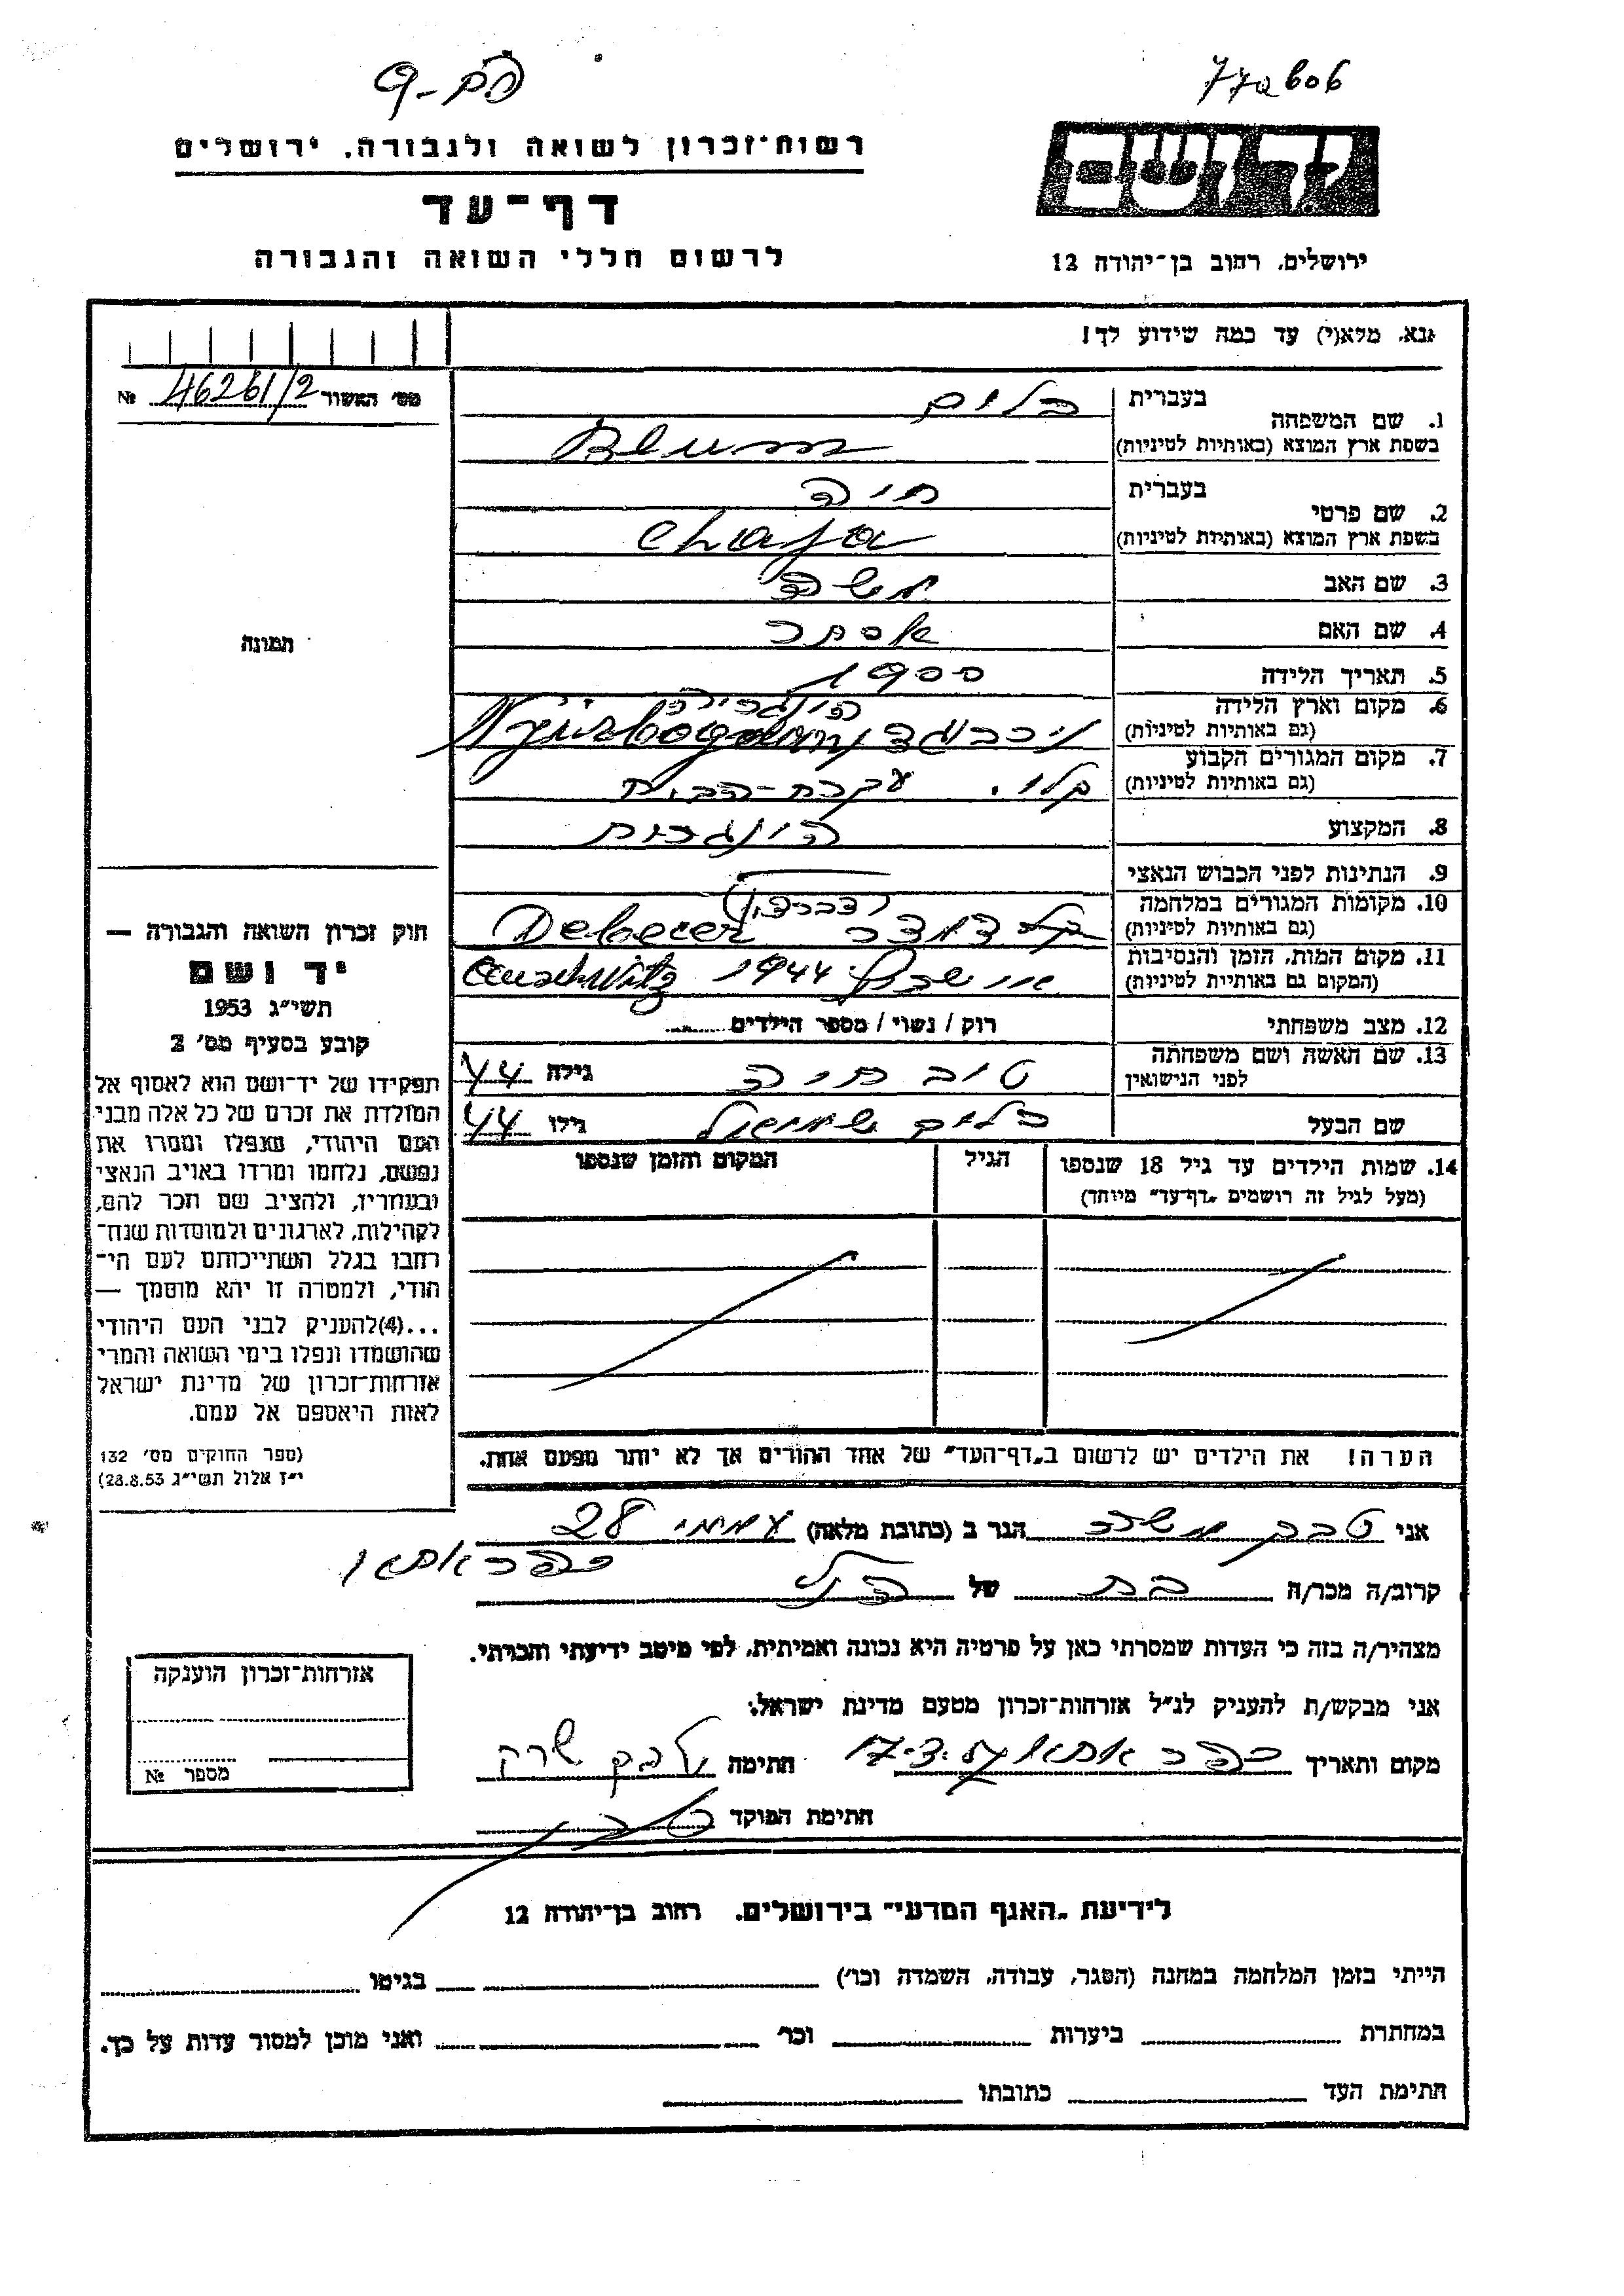 772606
רשות-זכרון לשואה ולגבורה, ירושלים
דף-עד
לרשום חללי השואה והגבורה
ירושלים, רחוב בן-יהודה 12
נא, מלא(י) עד כמה שידוע לך!
מס' האשור № 46261/2
1. שם המשפחה
בעברית בלום
בשפת ארץ המוצא (באותיות לטיניות) Blum
2. שם פרטי
בעברית חיה
בשפת ארץ המוצא (באותיות לטיניות) Chaja
3. שם האב משה
4. שם האם אסתר
5. תאריך הלידה 1900
6. מקום וארץ הלידה
(גם באותיות לטיניות) הונגריה
7. מקום המגורים הקבוע
(גם באותיות לטיניות) עקרת-הבית
8. המקצוע הונגרית
9. הנתינות לפני הכבוש הנאצי
10. מקומות המגורים במלחמה
(גם באותיות לטיניות) Debecen
11. מקום המות, הזמן והנסיבות
(המקום גם באותיות לטיניות) אושביץ 1944 Auschwitz
12. מצב משפחתי רוק / נשוי / מספר הילדים
13. שם האשה ושם משפחתה
לפני הנישואין טוב חיה גילה 44
שם הבעל בלום שמואל גילו 44
14. שמות הילדים עד גיל 18 שנספו
(מעל לגיל זה רושמים "דף-עד" מיוחד)
הגיל
המקום והזמן שנספו
הערה! את הילדים יש לרשום ב"דף-העד" של אחד ההורים אך לא יותר מפעם אחת.
תמונה
חוק זכרון השואה והגבורה —
יד ושם
תשי"ג 1953
קובע בסעיף מס' 2
תפקידו של יד-ושם הוא לאסוף אל
המולדת את זכרם של כל אלה מבני
העם היהודי, שנפלו ומסרו את
נפשם, נלחמו ומרדו באויב הנאצי
ובעוזריו, ולהציב שם וזכר להם,
לקהילות, לארגונים ולמוסדות שנח-
רבו בגלל השתייכותם לעם הי-
הודי, ולמטרה זו יהא מוסמך —
...(4)להעניק לבני העם היהודי
שהושמדו ונפלו בימי השואה והמרי
אזרחות-זכרון של מדינת ישראל
לאות היאספם אל עמם.
(ספר החוקים מס' 132
י"ז אלול תשי"ג 28.8.53)
אני הגר ב (כתובת מלאה) עממי 28
כפר אתא
קרוב/ה מכר/ה בת של הנ"ל
מצהיר/ה בזה כי העדות שמסרתי כאן על פרטיה היא נכונה ואמיתית, לפי מיטב ידיעתי והכרתי.
אני מבקש/ת להעניק לנ"ל אזרחות-זכרון מטעם מדינת ישראל.
מקום ותאריך כפר אתא חתימה
חתימת הפוקד
אזרחות-זכרון הוענקה
מספר №
לידיעת "האגף המדעי" בירושלים, רחוב בן-יהודה 12
הייתי בזמן המלחמה במחנה (הסגר, עבודה, השמדה וכו') בגיטו
במחתרת ביערות וכו' ואני מוכן למסור עדות על כך.
חתימת העד כתובתו